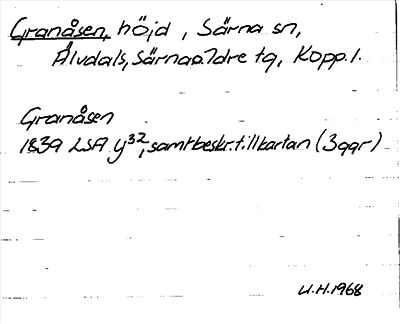 Granåsen, höjd, Särna sn,
Älvdals, Särna o. Idre tg, Kopp. l.
Granåsen
1839 LSA y32, samt beskr. till kartan (3 ggr)
U.H. 1968